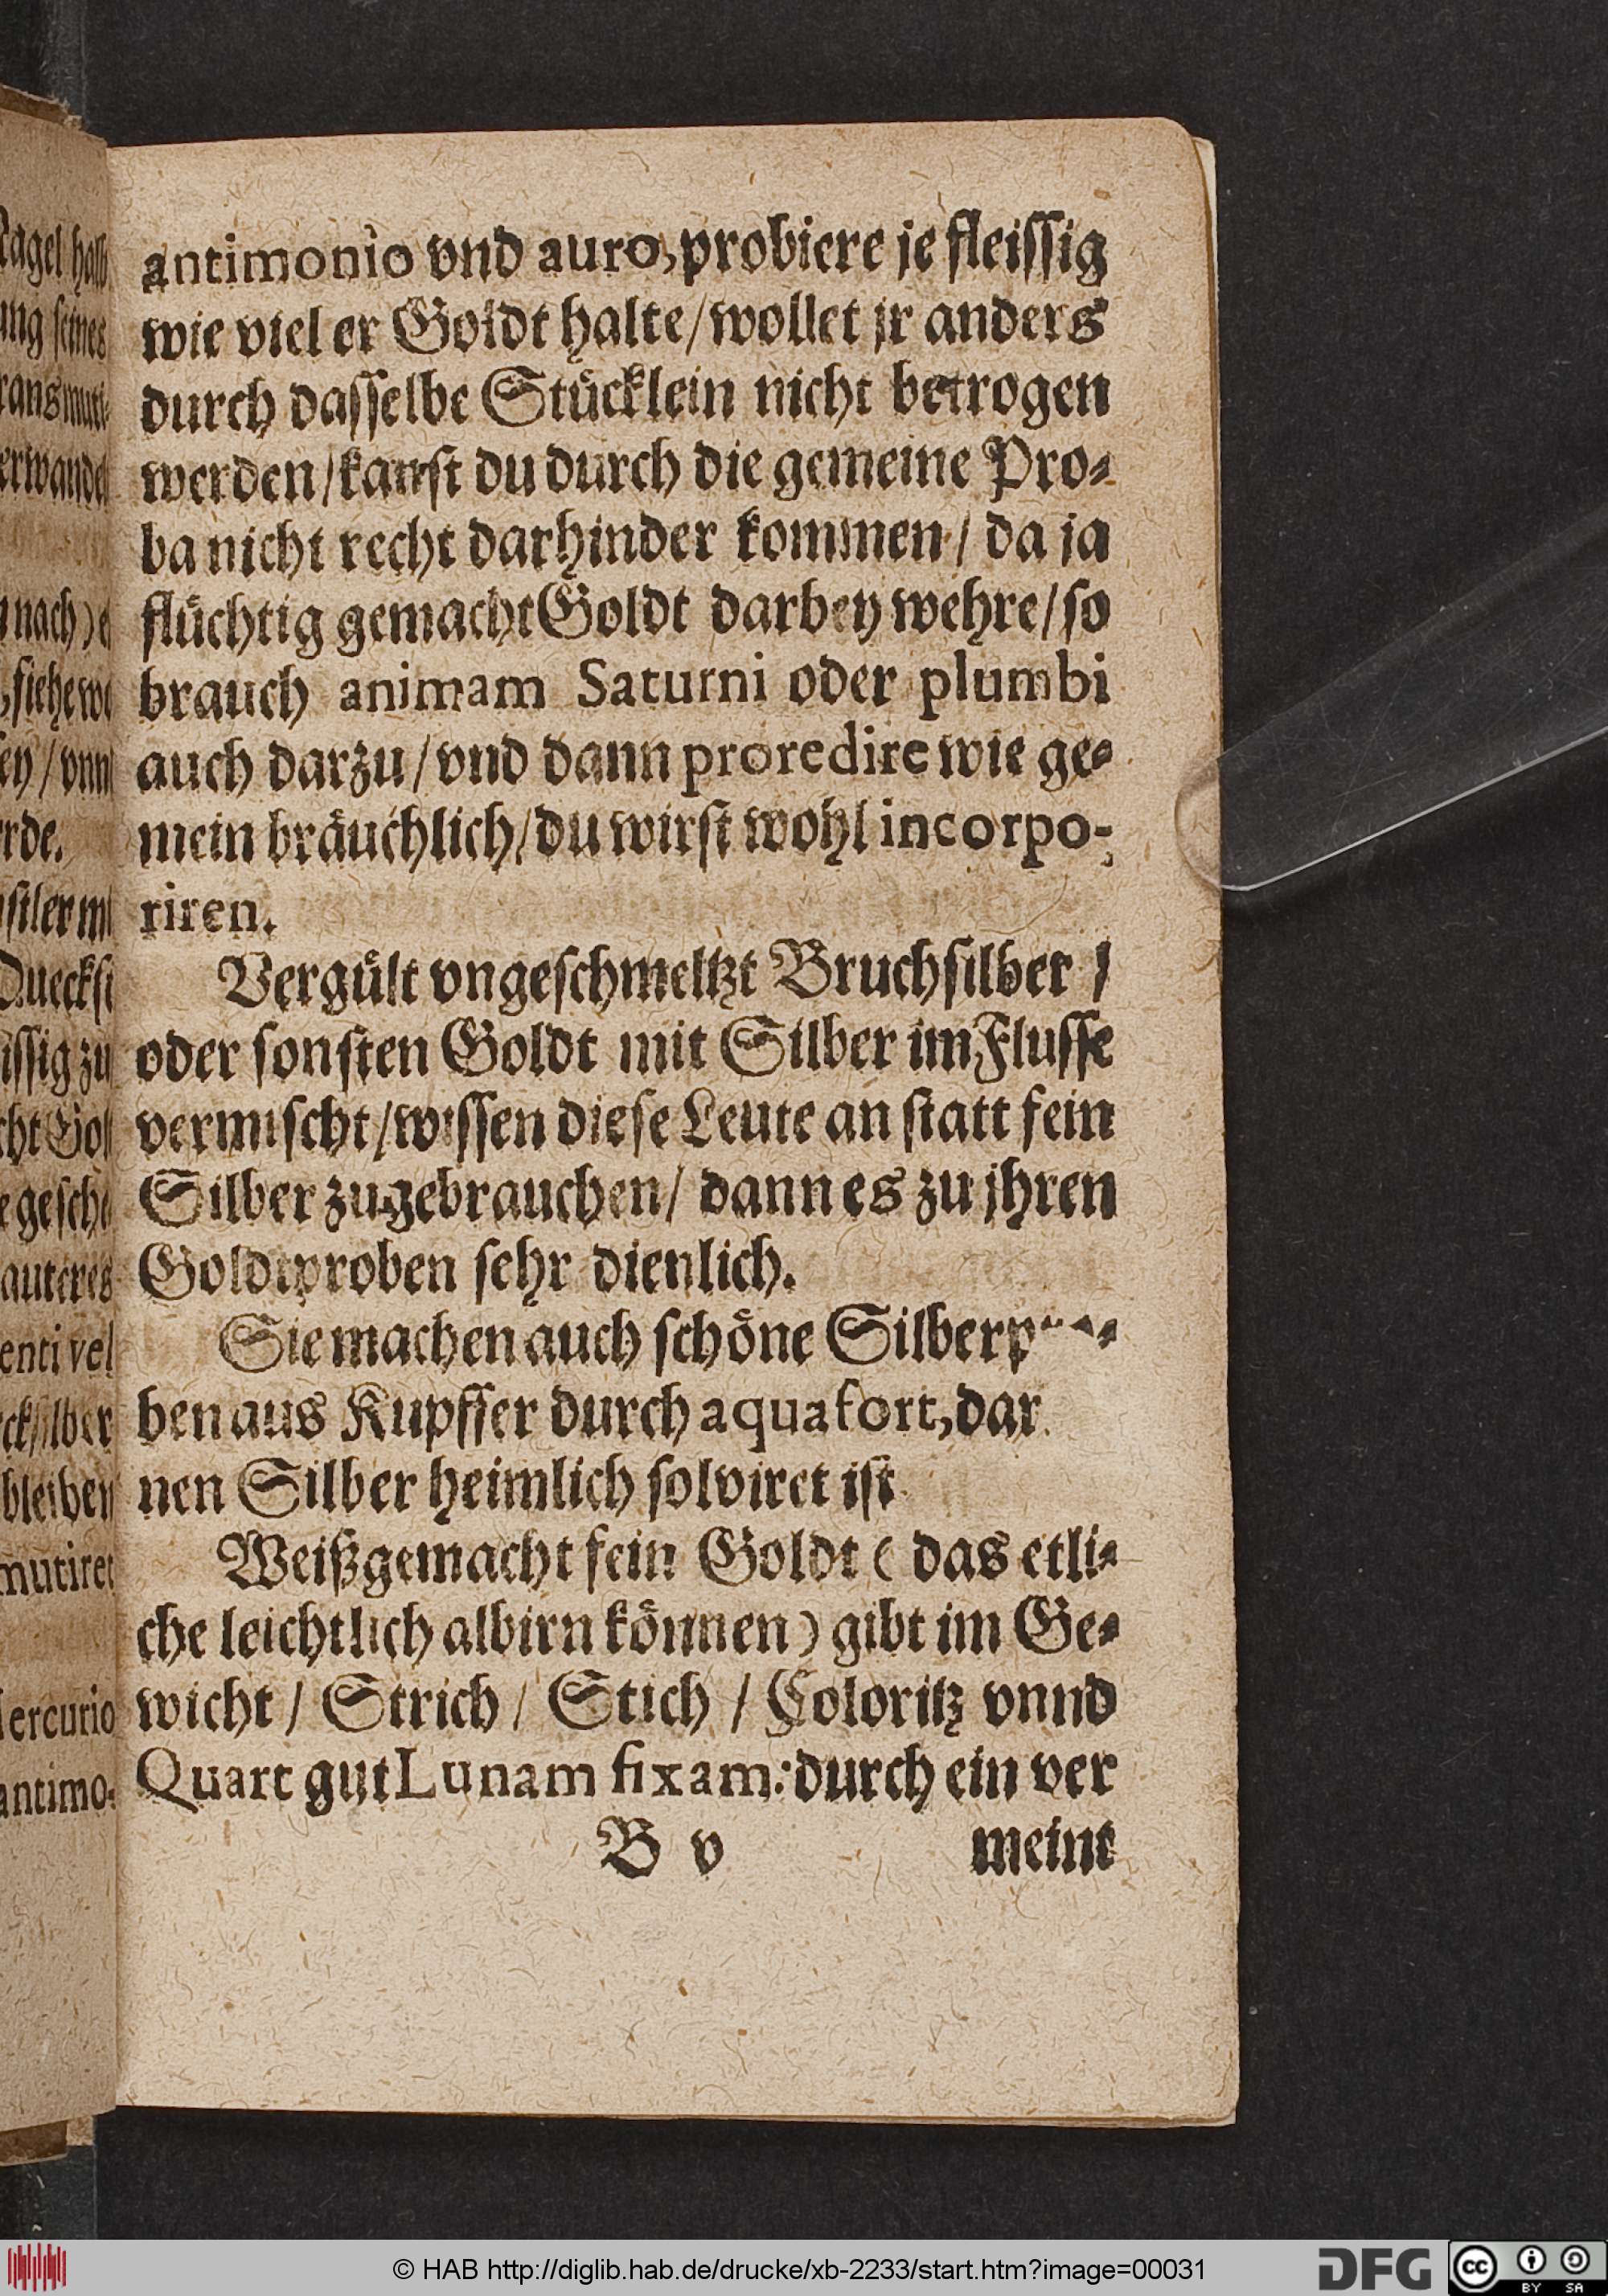 antimonio vnd auro, probiere je fleiſſig
wie viel er Goldt halte / wollet jr anders
durch daſſelbe Stuͤcklein nicht betrogen
werden / kanſt du durch die gemeine Pro⸗
ba nicht recht darhinder kommen / da ja
fluͤchtig gemacht Goldt darbey wehre / ſo
brauch animam Saturni oder plumbi
auch darzu / vnd dann proredire wie ge⸗
mein braͤuchlich / du wirſt wohl incorpo-
riren.
Verguͤlt vngeſchmeltzt Bruchſilber /
oder ſonſten Goldt mit Silber im Fluſſe
vermiſcht / wiſſen dieſe Leute an ſtatt fein
Silber zugebrauchen / dann es zu jhren
Goldtproben ſehr dienlich.
Sie machen auch ſchoͤne
ben aus Kupffer durch aquafort, dar
nen Silber heimlich ſolviret iſt
Weißgemacht fein Goldt ( das etli⸗
che leichtlich albirn koͤnnen ) gibt im Ge⸗
wicht / Strich / Stich / Coloritz vnnd
Quart gut Lunam fixam: durch ein ver
B v meint
© HAB http://diglib.hab.de/drucke/xb-2233/start.htm?image=00031
DFG
cc BY SA